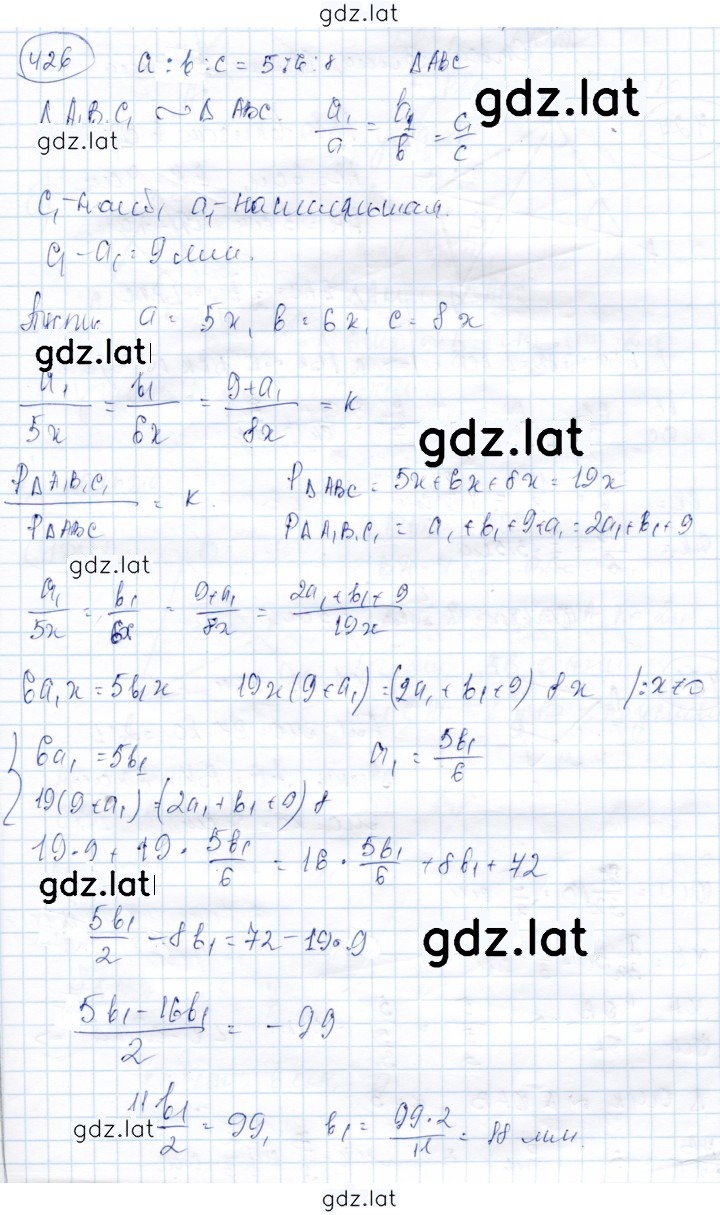 gdz.lat
426 a : b : c = 5 : 6 : 8 ΔABC
ΔA₁B₁C₁ ∼ ΔABC. a₁/a = b₁/b = c₁/c
gdz.lat
gdz.lat
c₁ - наиб, a₁ - наименьшая.
c₁ - a₁ = 9 мм.
a = 5x, b = 6x, c = 8x
gdz.lat
a₁/5x = b₁/6x = 9+a₁/8x = k
gdz.lat
PΔA₁B₁C₁/PΔABC = k. PΔABC = 5x+6x+8x = 19x
PΔA₁B₁C₁ = a₁+b₁+9+a₁ = 2a₁+b₁+9
gdz.lat
a₁/5x = b₁/6x = 9+a₁/8x = 2a₁+b₁+9/19x
6a₁x = 5b₁x 19x(9+a₁) = (2a₁+b₁+9) 8x /:x≠0
{ 6a₁ = 5b₁ a₁ = 5b₁/6
19(9+a₁) = (2a₁+b₁+9) 8
19·9 + 19 · 5b₁/6 = 16 · 5b₁/6 + 8b₁ + 72
gdz.lat
5b₁/2 - 8b₁ = 72 - 19·9
gdz.lat
5b₁ - 16b₁/2 = - 99
11b₁/2 = 99, b₁ = 99·2/11 = 18 мм.
gdz.lat
gdz.lat